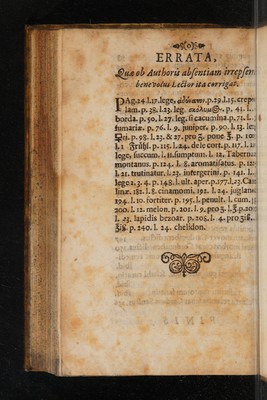 ERRATA,
Quæ ob Authoris absentiam irrepser
benevolus Lector ita corrigat.
PAg. 24. l. 17. lege, p. 29. l. 15. crepe
lam. p. 38. l. 23. leg. p. 43. l.
borda. p. 50. l. 27. leg. si cacumina. p. 71. l.
fumariæ. p. 76. l. 9. juniper. p. 90. l. 13. leg
p. 98. l. 23. & 27. pro ℥. pone p. 10
l. 1 p. 115. l. 24. dele cort. p. 117. l. 2
lege, succum. l. 11. sumptum. l. 12. Tabernæ
montanus. p. 124. l. 8. aromatisatus. p. 12
l. 21. trutinatur. l. 23. infergerint. p. 141. l.
lege 2. 3. 4. p. 148. l. ult. aper. p. 177. l. 23. Can
linæ. 181. l. 8. cinamomi. 192. l. 24. juglans
194. l. 10. fortiter. p. 195. l. penult. l. cum.
200. l. 12. melon. p. 201. l. 9. pro ℥.
l. 23. lapidis bezoar. p. 208. l. 4. pro
p. 240. l. 24. chelidon.